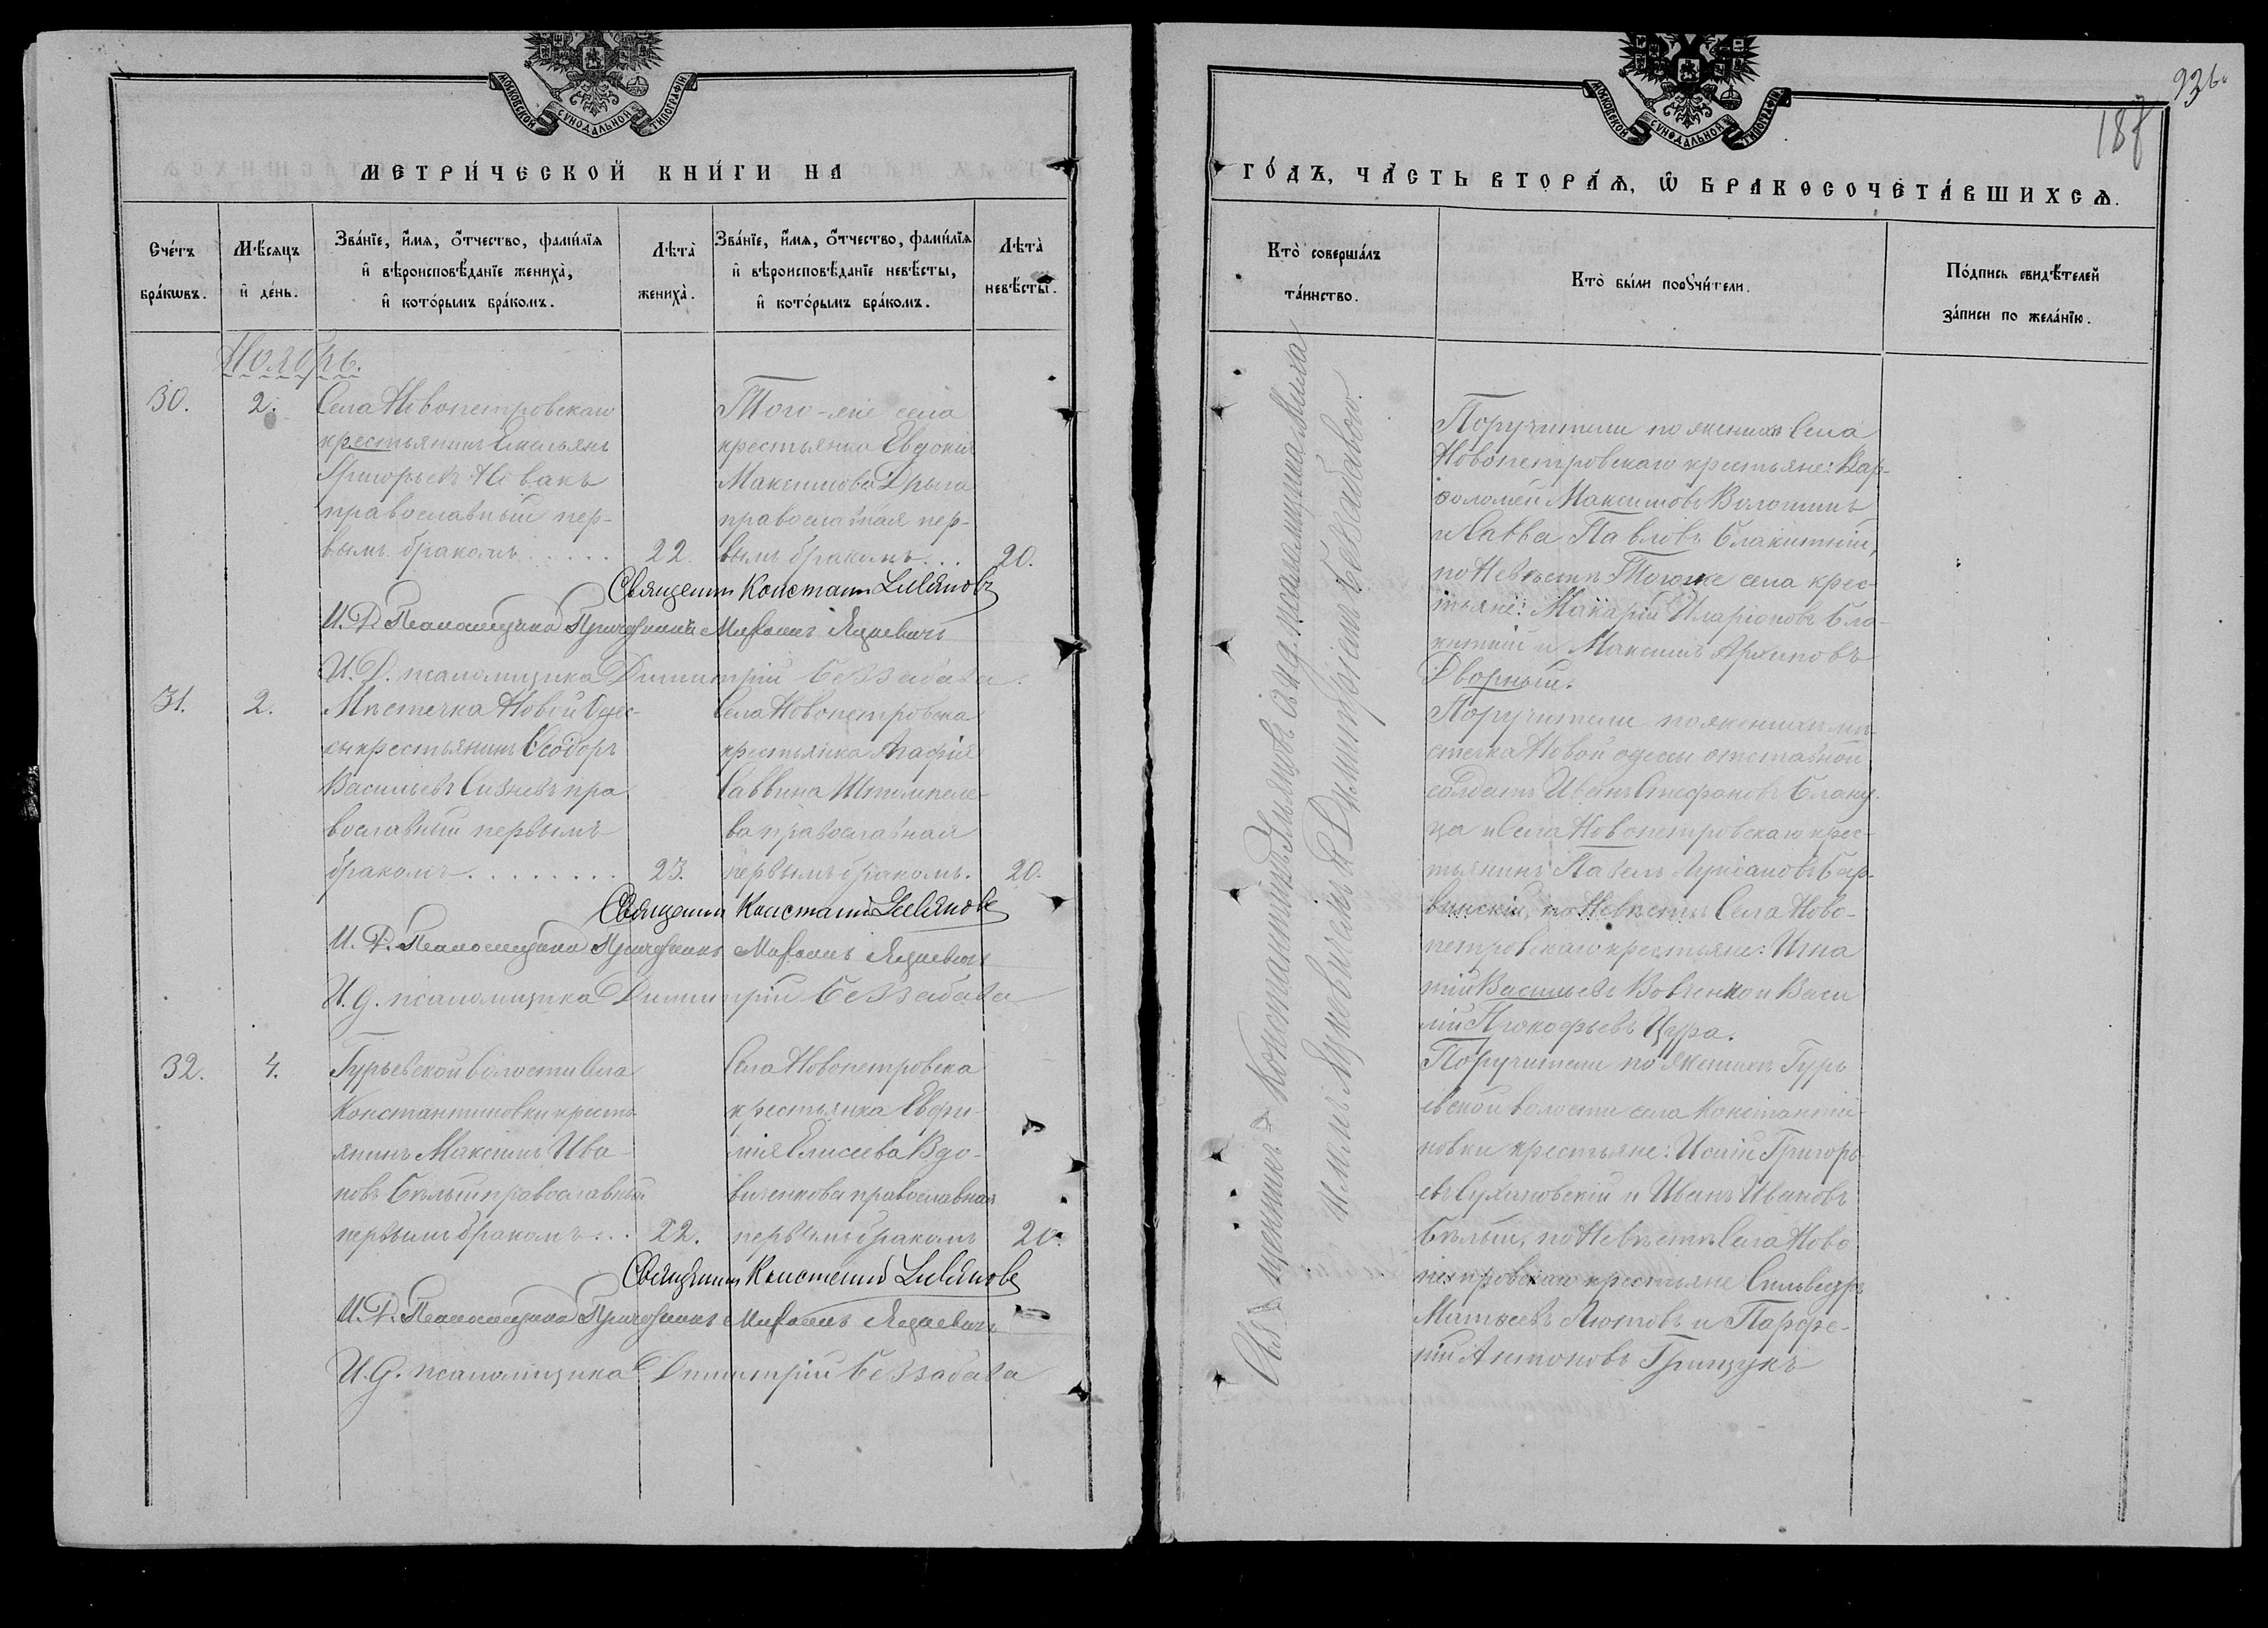 МОСКОВСКОЙ СѴНОДАЛЬНОЙ ТИПОГРАФІИ
МЕТРИ́ЧЕСКОЙ КНИ́ГИ НА
Сче́тъ бра́кωвъ.
Мѣ́сяцъ и҆ де́нь.
Зва́нїе, и҆́мя, ѻ҆́тчество, фами́лїя и҆ вѣроисповѣ́данїе жениха̀, и҆ кото́рымъ бра́комъ.
Лѣта̀ жениха̀.
Зва́нїе, и҆́мя, ѻ҆́тчество, фами́лїя и҆ вѣроисповѣ́данїе невѣ́сты, и҆ кото́рымъ бра́комъ.
Лѣта̀ невѣ́сты.
Ноябрь.
30.
2.
Села Новопетровскаго
крестьянинъ Емельянъ
Григорьевъ Новакъ
православный пер-
вымъ бракомъ . . . . .
22.
Того-же села
крестьянка Евдокія
Максимова Дрыга
православная пер-
вымъ бракомъ . . .
20.
Священникъ Константинъ
И. Д. Псаломщика Михаилъ Яцкевичъ
И. Д. псаломщика Димитрій Беззабава.
31.
2.
Мѣстечка Новой Одес-
сы крестьянинъ Ѳеодоръ
Васильевъ пра
вославный первымъ
бракомъ . . . . . . . .
23.
Села Новопетровска
крестьянка Агафія
Саввина Штомпеле-
ва православная
первымъ бракомъ.
20.
Священникъ Константинъ
И. Д. Псаломщика Михаилъ Яцкевичъ
И. д. псаломщика Димитрій Беззабава
32.
4.
Гурьевской волости села
Константиновки кресть
янинъ Максимъ Ива-
новъ Бѣлый православный
первымъ бракомъ . . .
22.
Села Новопетровска
крестьянка Евфи-
мія Елисеева Вдо-
виченкова православная
первымъ бракомъ
20.
Священникъ Константинъ
И. Д. Псаломщика Михаилъ Яцкевичъ
И. д. псаломщика Димитрій Беззабава
936
188
МОСКОВСКОЙ СѴНОДАЛЬНОЙ ТИПОГРАФІИ
ГО́ДЪ, ЧА́СТЬ ВТОРА́Ѧ, Ѡ҆ БРАКОСОЧЕТА́ВШИХСѦ.
Кто̀ соверша́лъ та́инство.
Кто̀ бы́ли порꙋчи́тели.
По́дпись свидѣ́телей за́писи по жела́нїю.
Священникъ Константинъ псаломщика Миха
илъ Яцкевичъ и Димитрій Беззабавою.
Поручители по женихѣ Села
Новопетровскаго крестьяне: Вар-
ѳоломей Максимовъ Волошинъ
и Савва Павловъ Блакитный,
по Невѣстѣ Того же села крес-
тьяне: Макарій Иларіоновъ Бла-
китный и Максимъ Архиповъ
Дворный.
Поручители по женихѣ мѣ-
стечка Новой одессы отставной
солдатъ Иванъ Стефановъ
ца и Села Новопетровскаго крес-
тьянинъ Павелъ Лукіановъ Бар-
винскій, по Невѣстѣ Села Ново-
петровскаго крестьяне: Игна
тій Васильевъ Вовченко и Васи
лій Прокофьевъ Цура.
Поручители по женихѣ Гурь
евской волости села Константи-
новки крестьяне: Исаій Григорь-
евъ и Иванъ Ивановъ
Бѣлый, по Невѣстѣ Села Ново
петровскаго крестьяне Сильвестръ
Матѳеевъ Лютовъ и Парфе-
ній Антоновъ Грищукъ